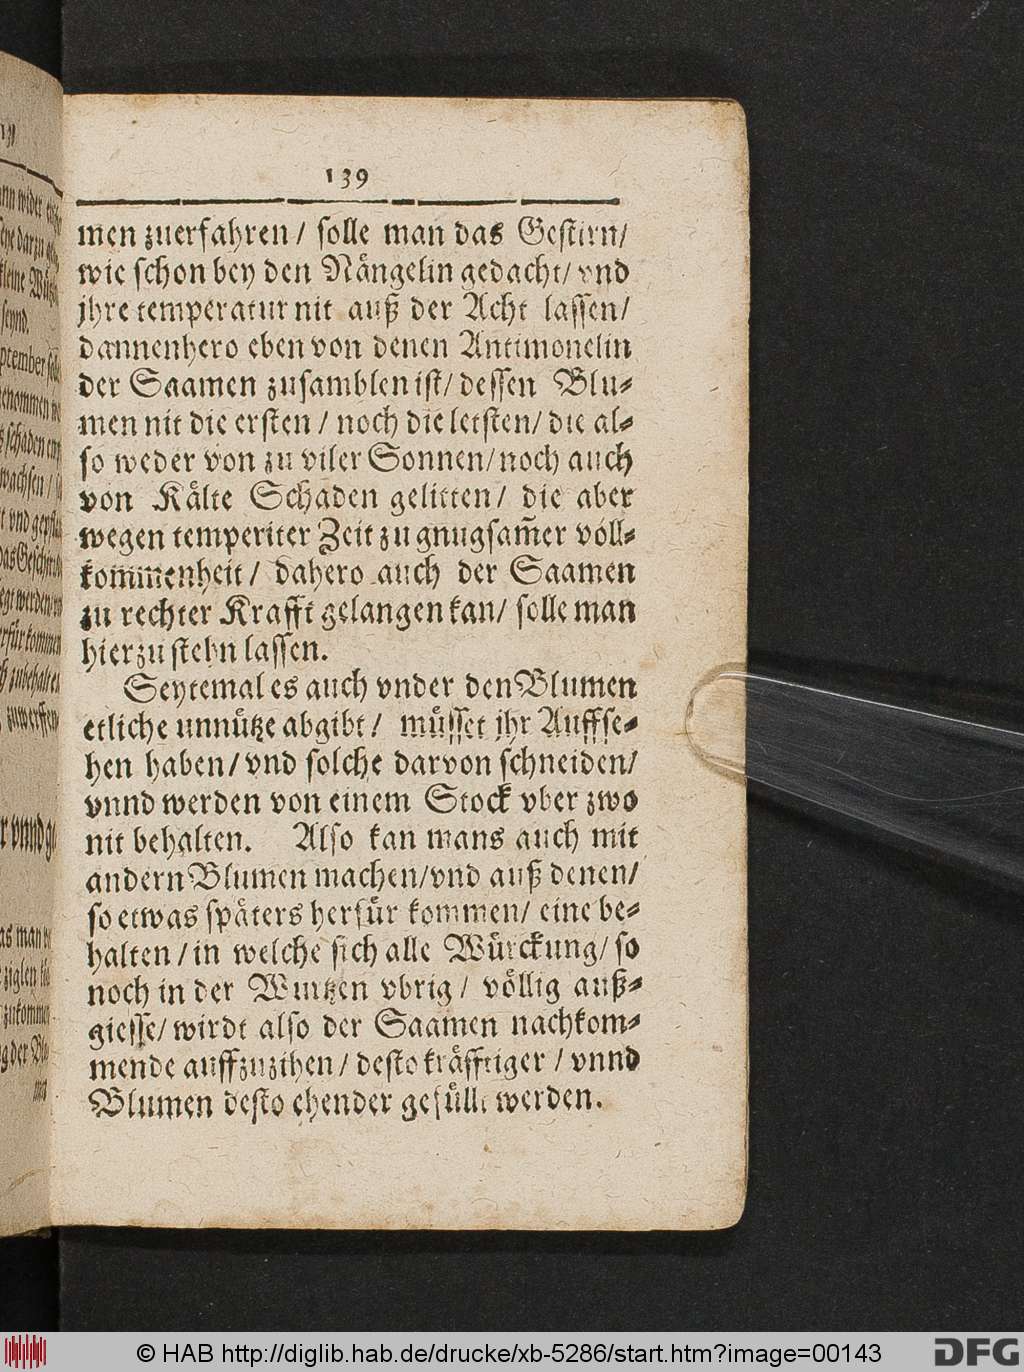 139
men zuerfahren / solle man das Gestirn/
wie schon bey den Nängelin gedacht/ vnd
jhre temperatur nit auß der Acht lassen/
dannenhero eben von denen Antimonelin
der Saamen zusamblen ist/ dessen Blu-
men nit die ersten / noch die letsten/ die al-
so weder von zu viler Sonnen/ noch auch
von Kälte Schaden gelitten/ die aber
wegen temperiter Zeit zu gnugsam̃er voll-
kommenheit / dahero auch der Saamen
zu rechter Krafft gelangen kan/ solle man
hierzu stehn lassen.
Seytemal es auch vnder den Blumen
etliche unnütze abgibt / müsset jhr Auffse-
hen haben/ vnd solche darvon schneiden/
vnnd werden von einem Stock vber zwo
nit behalten. Also kan mans auch mit
andern Blumen machen/vnd auß denen/
so etwas späters herfür kommen/ eine be-
halten / in welche sich alle Würckung/ so
noch in der Wurtzen vbrig / völlig auß-
giesse/ wirdt also der Saamen nachkom-
mende auffzuzihen / desto kräfftiger / vnnd
Blumen desto ehender gefüllt werden.
© HAB http://diglib.hab.de/drucke/xb-5286/start.htm?image=00143
DFG